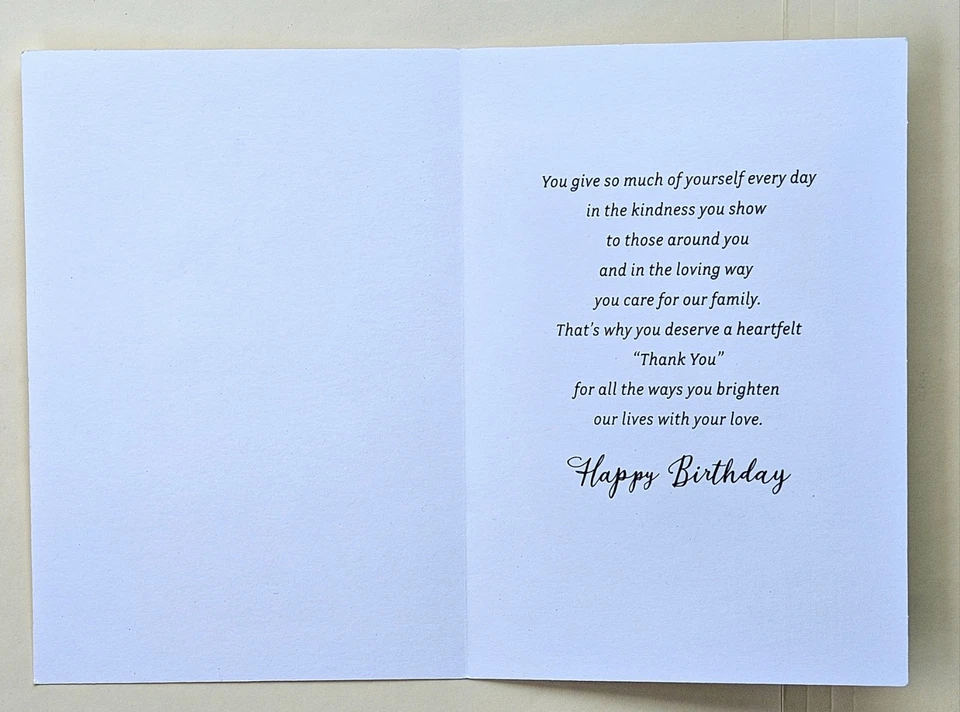 You give so much of yourself every day
in the kindness you show
to those around you
and in the loving way
you care for our family.
That's why you deserve a heartfelt
“Thank You”
for all the ways you brighten
our lives with your love.
Happy Birthday